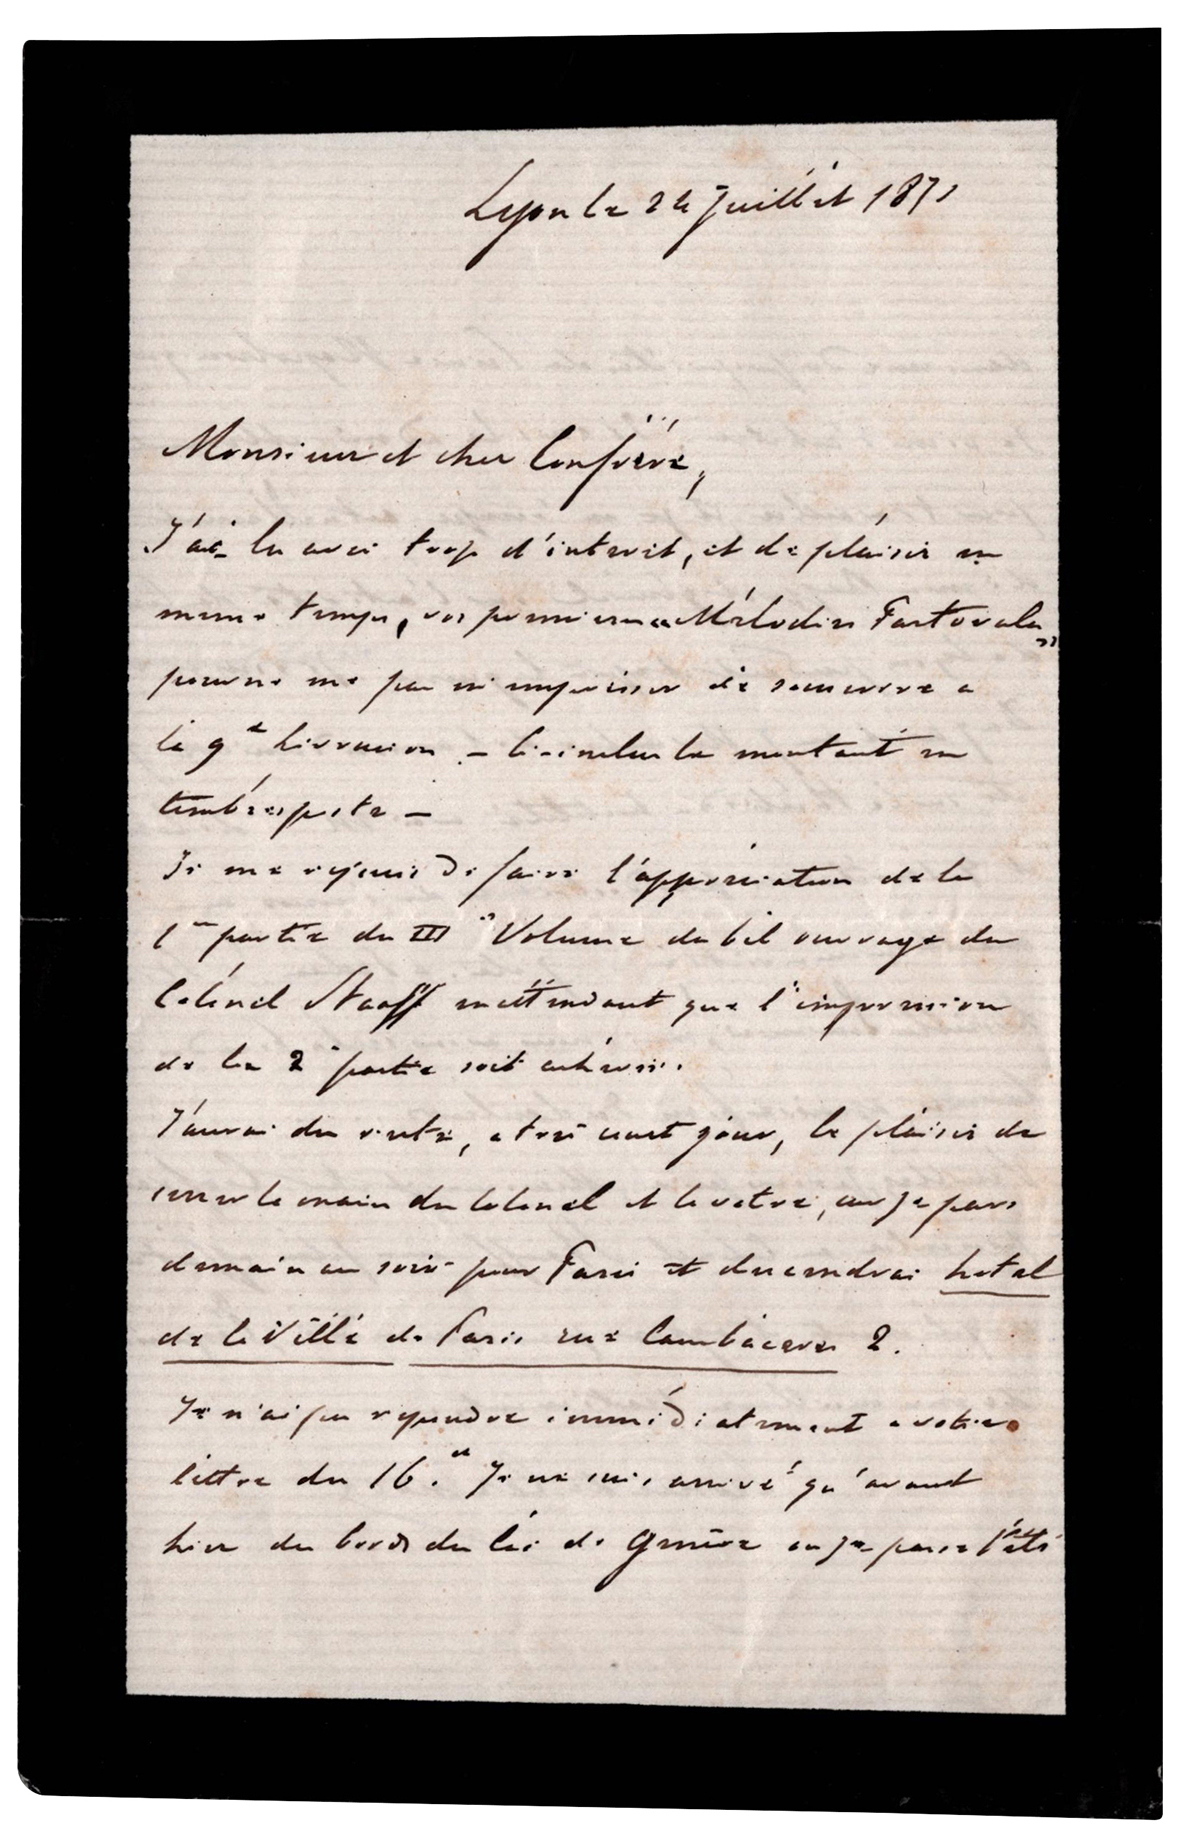 Lyon le 24 Juillet 1871
Monsieur et cher Confrère,
J'ai lu avec trop d'interet, et de plaisir en
meme temps, vos premieres Mélodies Pastorales
pour ne me pas m'empresser de souscrire a
la 9e Livraison _ Ci-inclus le montant en
timbresposte _
Je me rejouis de faire l'appréciation de la
1re partie du III e Volume du bel ouvrage du
Colonel Staaff en attendant que l'impression
de la 2e partie soit achevée.
J'aurai du reste, a tres court jour, le plaisir de
serrer la main du Colonel et la votre, car je pars
demain au soir pour Paris et descendrai hotel
de la Ville de Paris rue Cambacères 2.
Je n'ai pu repondre immédiatement a votre
lettre du 16. Je ne suis arrivé qu'avant
hier du bords du lac de Genève ou je passe l'été